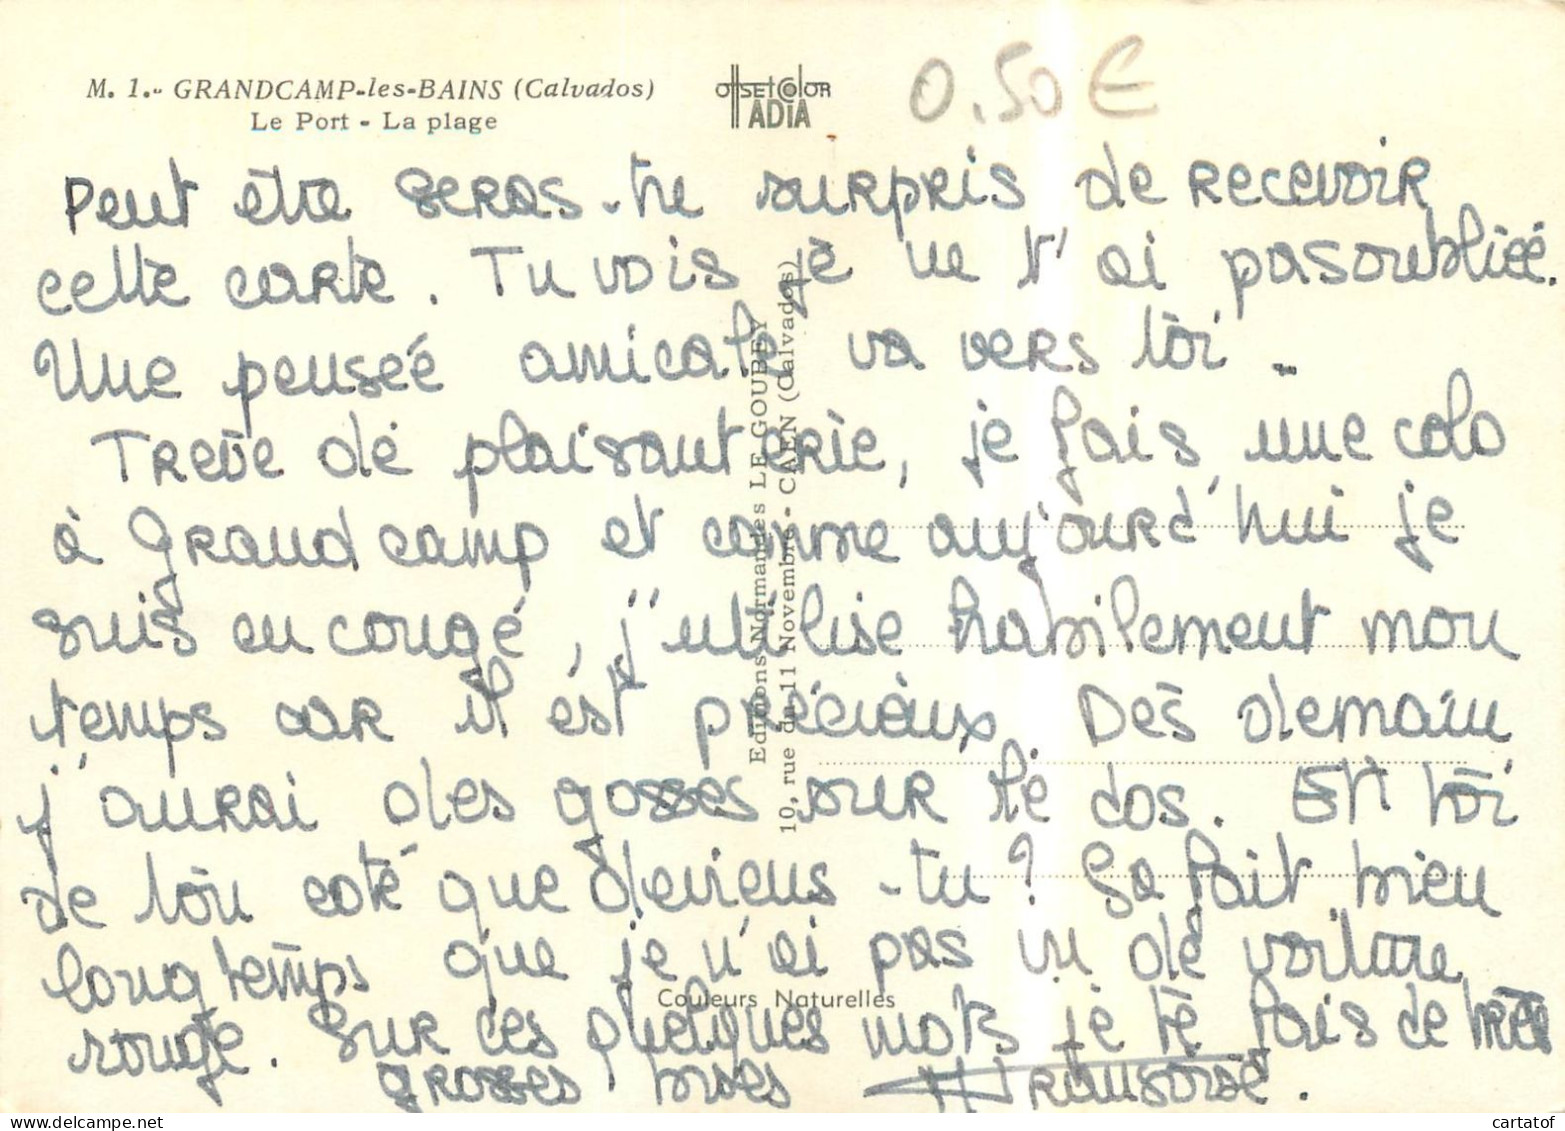 M. 1.- GRANDCAMP-les-BAINS (Calvados)
Le Port - La plage
OffSEtColOR
IADIA
0.50 €
Peut être seras-tu surpris de recevoir
cette carte. Tu vois je ne t'ai pas oubliéé.
Une pensée amicale va vers toi.
Trève de plaisanterie, je fais une colo
à Grandcamp et comme aujourd'hui je
suis en congé, j'utilise habilement mon
temps car il est précieux. Dès demain
j'aurai des gosses sur le dos. Et toi
de ton coté que deviens-tu ? Sa fait bien
longtemps que je n'ai pas vu de voiture
rouge. Sur ces quelques mots je te fais de très
grosses bises Françoise.
Editions Normandes LE GOUBEY
10, rue du 11 Novembre - CAEN (Calvados)
Couleurs Naturelles
cartatof